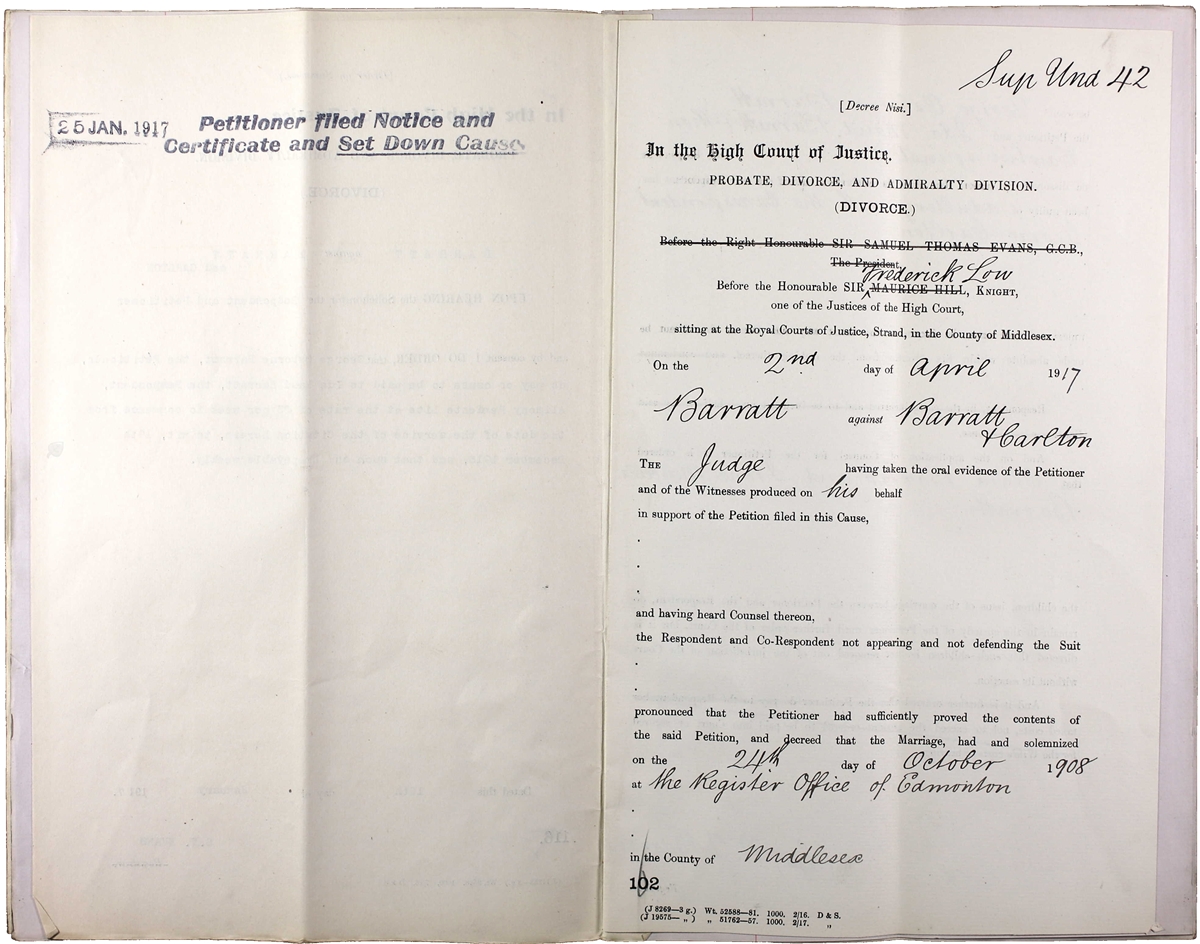 25 JAN. 1917
Petitioner filed Notice and
Certificate and Set Down Cause
Sup Und 42
[Decree Nisi.]
In the High Court of Justice.
PROBATE, DIVORCE, AND ADMIRALTY DIVISION.
(DIVORCE.)
Before the Right Honourable SIR SAMUEL THOMAS EVANS, G.C.B.,
The President,
Frederick Low
Before the Honourable SIR MAURICE HILL, KNIGHT,
one of the Justices of the High Court,
sitting at the Royal Courts of Justice, Strand, in the County of Middlesex.
On the 2nd day of April 1917
Barratt against Barratt
& Carlton
THE Judge having taken the oral evidence of the Petitioner
and of the Witnesses produced on his behalf
in support of the Petition filed in this Cause,
and having heard Counsel thereon,
the Respondent and Co-Respondent not appearing and not defending the Suit
pronounced that the Petitioner had sufficiently proved the contents of
the said Petition, and decreed that the Marriage, had and solemnized
on the 24th day of October 1908
at the Register Office of Edmonton
in the County of Middlesex
102
(J 8269—3 g.) Wt. 52588—81. 1000. 2/16. D & S.
(J 19575— „ ) „ 51762—57. 1000. 2/17. „